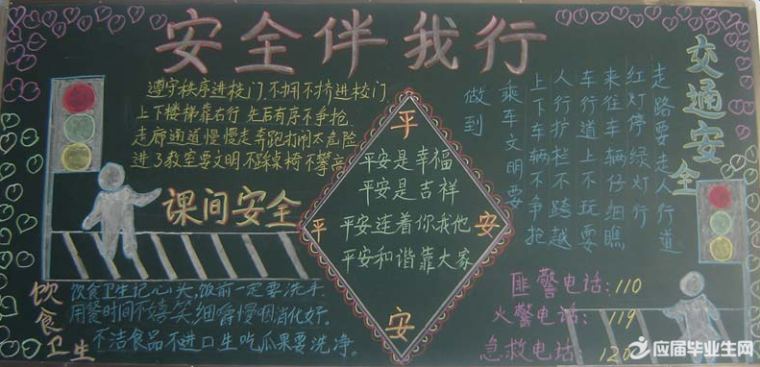 安全伴我行
遵守秩序进校门 不拥不挤进校门
上下楼梯靠右行 先后有序不争抢
走廊通道慢慢走 奔跑打闹太危险
进了教室要文明 不踩桌椅不攀高
课间安全
平安是幸福
平安是吉祥
平安连着你我他
平安和谐靠大家
平
平
安
安
交通安全
走路要走人行道
红灯停绿灯行
来往车辆仔细瞧
车行道上不玩耍
人行护栏不跨越
上下车辆不争抢
乘车文明要
做到
匪警电话:110
火警电话:119
急救电话:120
饮食卫生
饮食卫生记心头,饭前一定要洗手.
用餐时间不嬉笑,细嚼慢咽消化好.
不洁食品不进口,生吃瓜果要洗净.
应届毕业生网